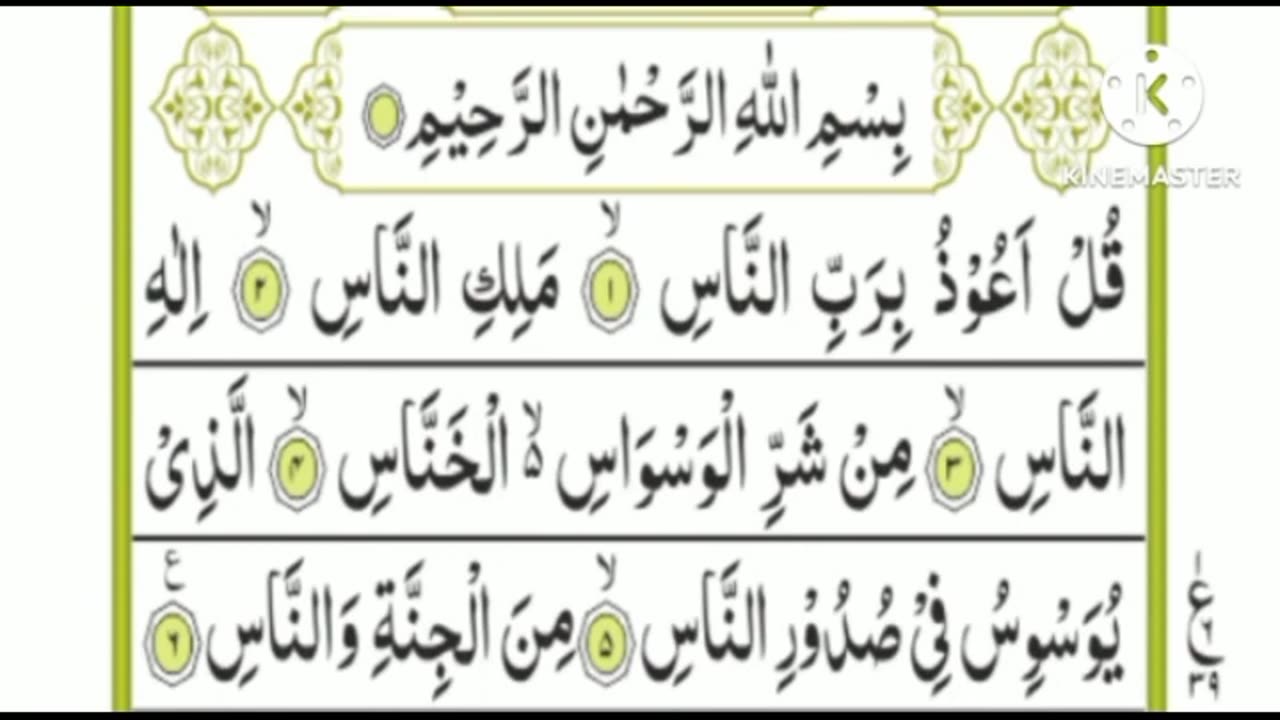 بِسْمِ اللّٰهِ الرَّحْمٰنِ الرَّحِيْمِ
KINEMASTER
قُلْ اَعُوْذُ بِرَبِّ النَّاسِ ۙ۱ مَلِكِ النَّاسِ ۙ۲ اِلٰهِ
النَّاسِ ۙ۳ مِنْ شَرِّ الْوَسْوَاسِ ۵ۙ الْخَنَّاسِ ۙ۴ الَّذِیْ
يُوَسْوِسُ فِیْ صُدُوْرِ النَّاسِ ۙ۵ مِنَ الْجِنَّةِ وَالنَّاسِ ۶ ع
ع
۳۹